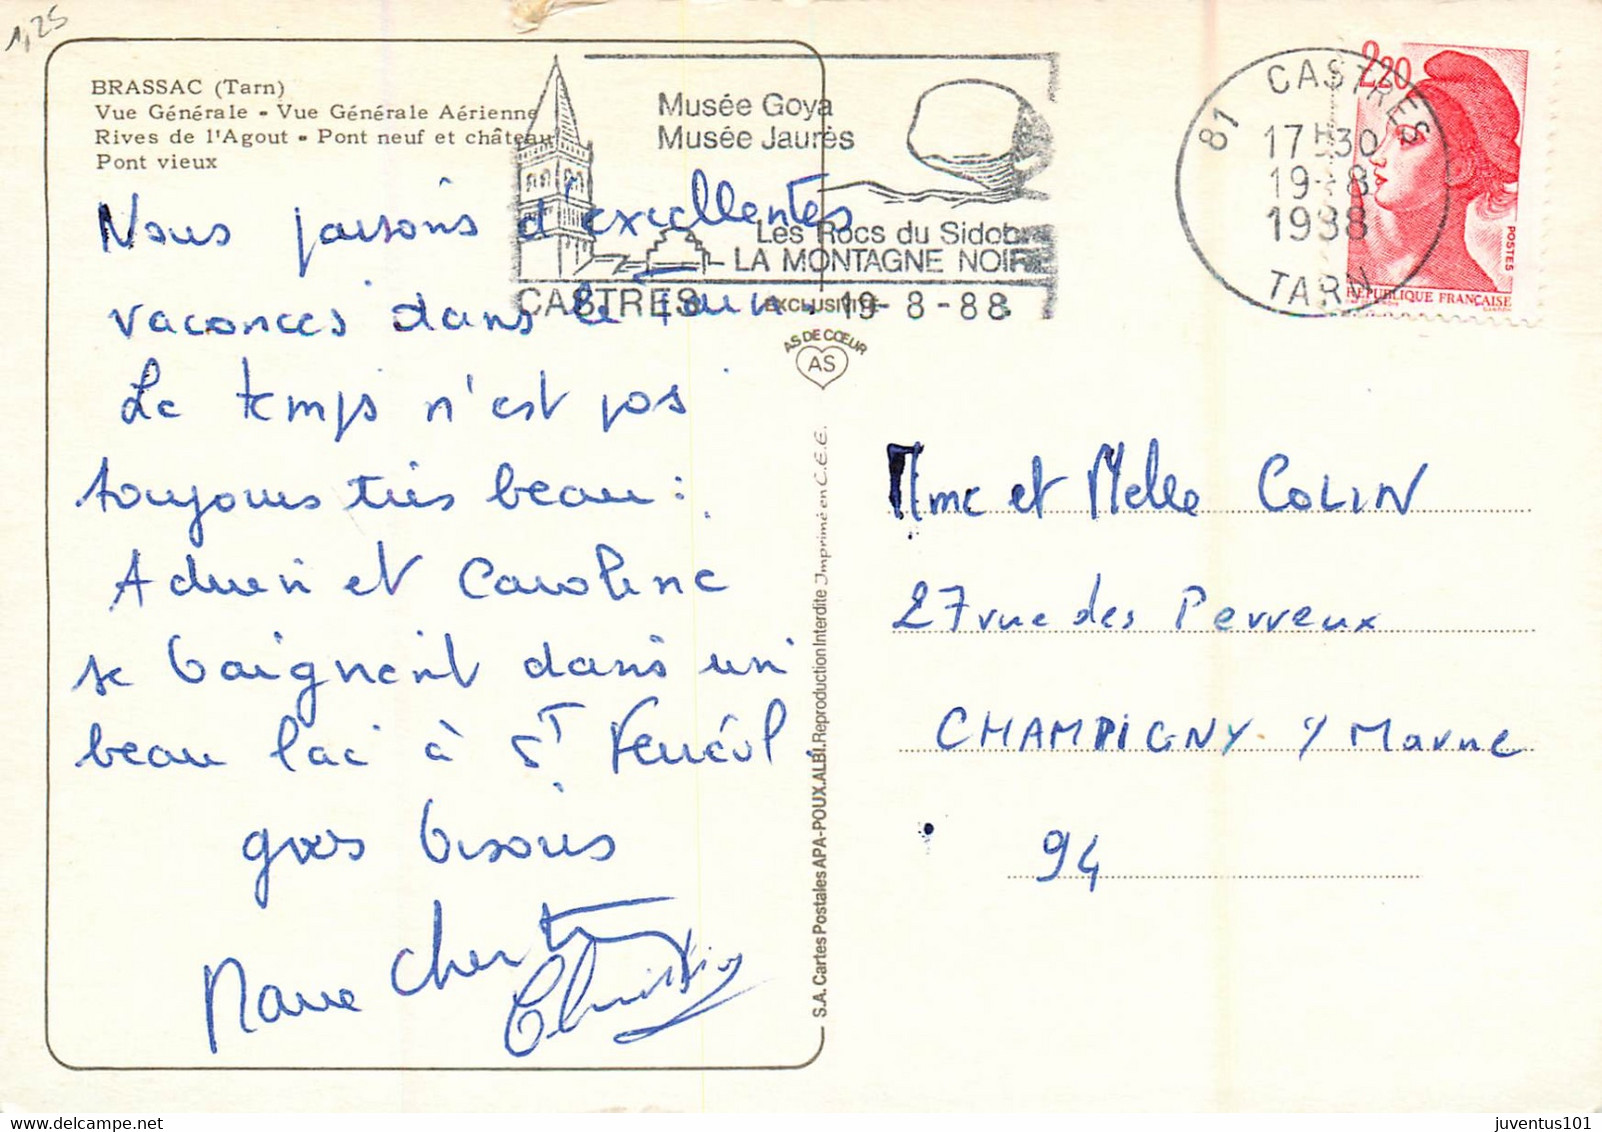 1,25
BRASSAC (Tarn)
Vue Générale - Vue Générale Aérienne
Rives de l'Agout - Pont neuf et château
Pont vieux
Musée Goya
Musée Jaurès
Les Rocs du Sidobre
LA MONTAGNE NOIRE
CASTRES 19-8-88
81 CASTRES
17H30
19-8
1988
TARN
2,20
POSTES
REPUBLIQUE FRANÇAISE
EXCLUSIVITE
AS DE CŒUR
AS
Nous passons d'excellentes
vacances dans le Tarn.
Le temps n'est pas
toujours très beau :
Adrien et Caroline
se baignent dans un
beau lac à St Ferréol.
gros bisous
Marie Christine
S.A. Cartes Postales APA-POUX.ALBI.Reproduction Interdite Imprimé en C.E.E.
Mme et Melle COLIN
27 rue des Perreux
CHAMPIGNY s/ Marne
94
juventus101